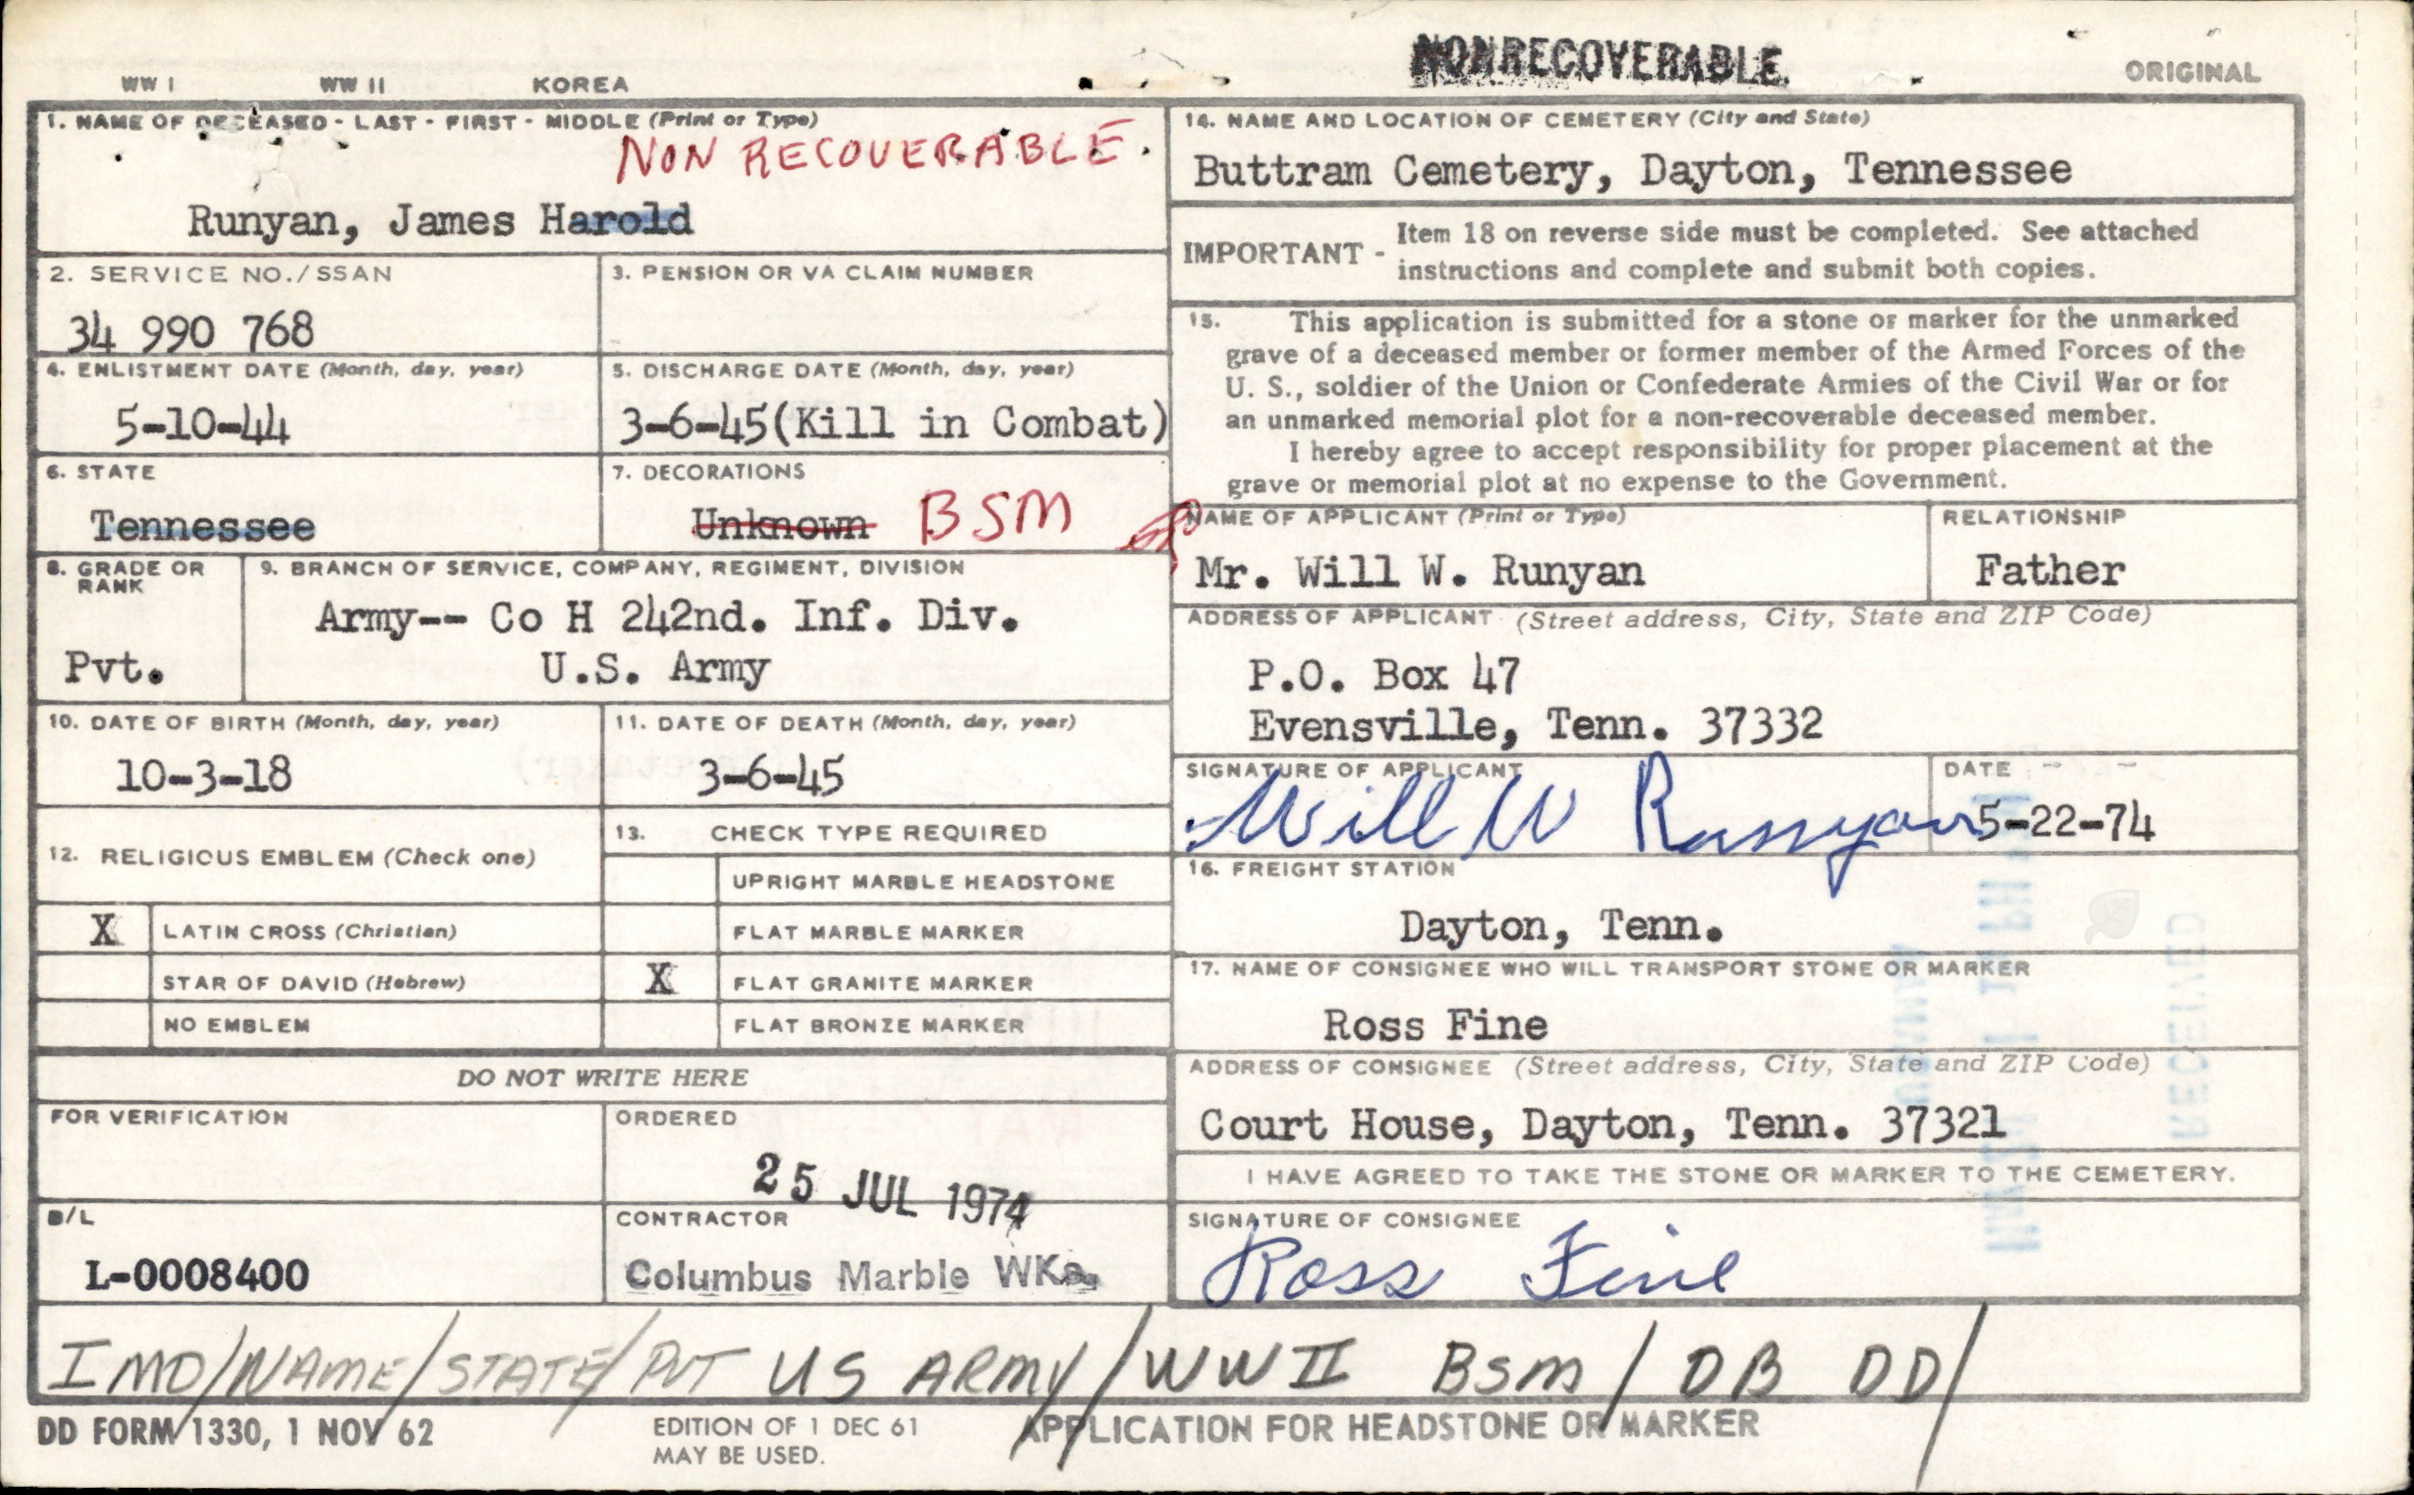 NONRECOVERABLE
ORIGINAL
WW I WW II KOREA
1. NAME OF DECEASED - LAST - FIRST - MIDDLE (Print or Type)
NON RECOVERABLE
Runyan, James Harold
2. SERVICE NO./SSAN
34 990 768
3. PENSION OR VA CLAIM NUMBER
4. ENLISTMENT DATE (Month, day, year)
5-10-44
5. DISCHARGE DATE (Month, day, year)
3-6-45(Kill in Combat)
6. STATE
Tennessee
7. DECORATIONS
Unknown BSM
8. GRADE OR
RANK
Pvt.
9. BRANCH OF SERVICE, COMPANY, REGIMENT, DIVISION
Army-- Co H 242nd. Inf. Div.
U.S. Army
10. DATE OF BIRTH (Month, day, year)
10-3-18
11. DATE OF DEATH (Month, day, year)
3-6-45
12. RELIGIOUS EMBLEM (Check one)
X LATIN CROSS (Christian)
STAR OF DAVID (Hebrew)
NO EMBLEM
13. CHECK TYPE REQUIRED
UPRIGHT MARBLE HEADSTONE
FLAT MARBLE MARKER
X FLAT GRANITE MARKER
FLAT BRONZE MARKER
DO NOT WRITE HERE
FOR VERIFICATION
ORDERED
25 JUL 1974
B/L
L-0008400
CONTRACTOR
Columbus Marble WKs.
14. NAME AND LOCATION OF CEMETERY (City and State)
Buttram Cemetery, Dayton, Tennessee
IMPORTANT - Item 18 on reverse side must be completed. See attached
instructions and complete and submit both copies.
15. This application is submitted for a stone or marker for the unmarked
grave of a deceased member or former member of the Armed Forces of the
U. S., soldier of the Union or Confederate Armies of the Civil War or for
an unmarked memorial plot for a non-recoverable deceased member.
I hereby agree to accept responsibility for proper placement at the
grave or memorial plot at no expense to the Government.
NAME OF APPLICANT (Print or Type)
Mr. Will W. Runyan
RELATIONSHIP
Father
ADDRESS OF APPLICANT (Street address, City, State and ZIP Code)
P.O. Box 47
Evensville, Tenn. 37332
SIGNATURE OF APPLICANT
Will W Runyan
DATE
5-22-74
16. FREIGHT STATION
Dayton, Tenn.
17. NAME OF CONSIGNEE WHO WILL TRANSPORT STONE OR MARKER
Ross Fine
ADDRESS OF CONSIGNEE (Street address, City, State and ZIP Code)
Court House, Dayton, Tenn. 37321
I HAVE AGREED TO TAKE THE STONE OR MARKER TO THE CEMETERY.
SIGNATURE OF CONSIGNEE
Ross Fine
RECEIVED
IMO/NAME/STATE/PVT US ARMY/WW II BSM/DB DD/
DD FORM 1330, 1 NOV 62
EDITION OF 1 DEC 61
MAY BE USED.
APPLICATION FOR HEADSTONE OR MARKER